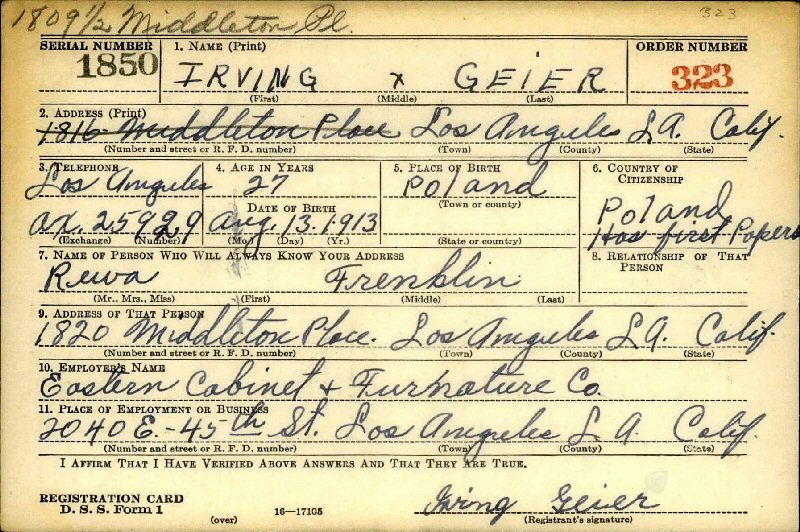 1809 1/2 Middleton Pl. 323
SERIAL NUMBER 1. NAME (Print) ORDER NUMBER
1850 IRVING x GEIER 323
(First) (Middle) (Last)
2. ADDRESS (Print)
1816 Middleton Place Los Angules L.A. Calif.
(Number and street or R. F. D. number) (Town) (County) (State)
3. TELEPHONE 4. AGE IN YEARS 5. PLACE OF BIRTH 6. COUNTRY OF CITIZENSHIP
Los Angules 27 Poland Poland
DATE OF BIRTH (Town or country)
AX. 25929 Aug. 13. 1913 Has first Papers
(Exchange) (Number) (Mo.) (Day) (Yr.) (State or country)
7. NAME OF PERSON WHO WILL ALWAYS KNOW YOUR ADDRESS 8. RELATIONSHIP OF THAT PERSON
Rewa Frenklin
(Mr., Mrs., Miss) (First) (Middle) (Last)
9. ADDRESS OF THAT PERSON
1820 Middleton Place. Los Angules L.A. Calif.
(Number and street or R. F. D. number) (Town) (County) (State)
10. EMPLOYER'S NAME
Eastern Cabinet + Furnature Co.
11. PLACE OF EMPLOYMENT OR BUSINESS
2040 E. - 45th St. Los Angules L.A. Calif.
(Number and street or R. F. D. number) (Town) (County) (State)
I AFFIRM THAT I HAVE VERIFIED ABOVE ANSWERS AND THAT THEY ARE TRUE.
REGISTRATION CARD
D. S. S. Form 1 (over) 16—17105 Irving Geier
(Registrant's signature)